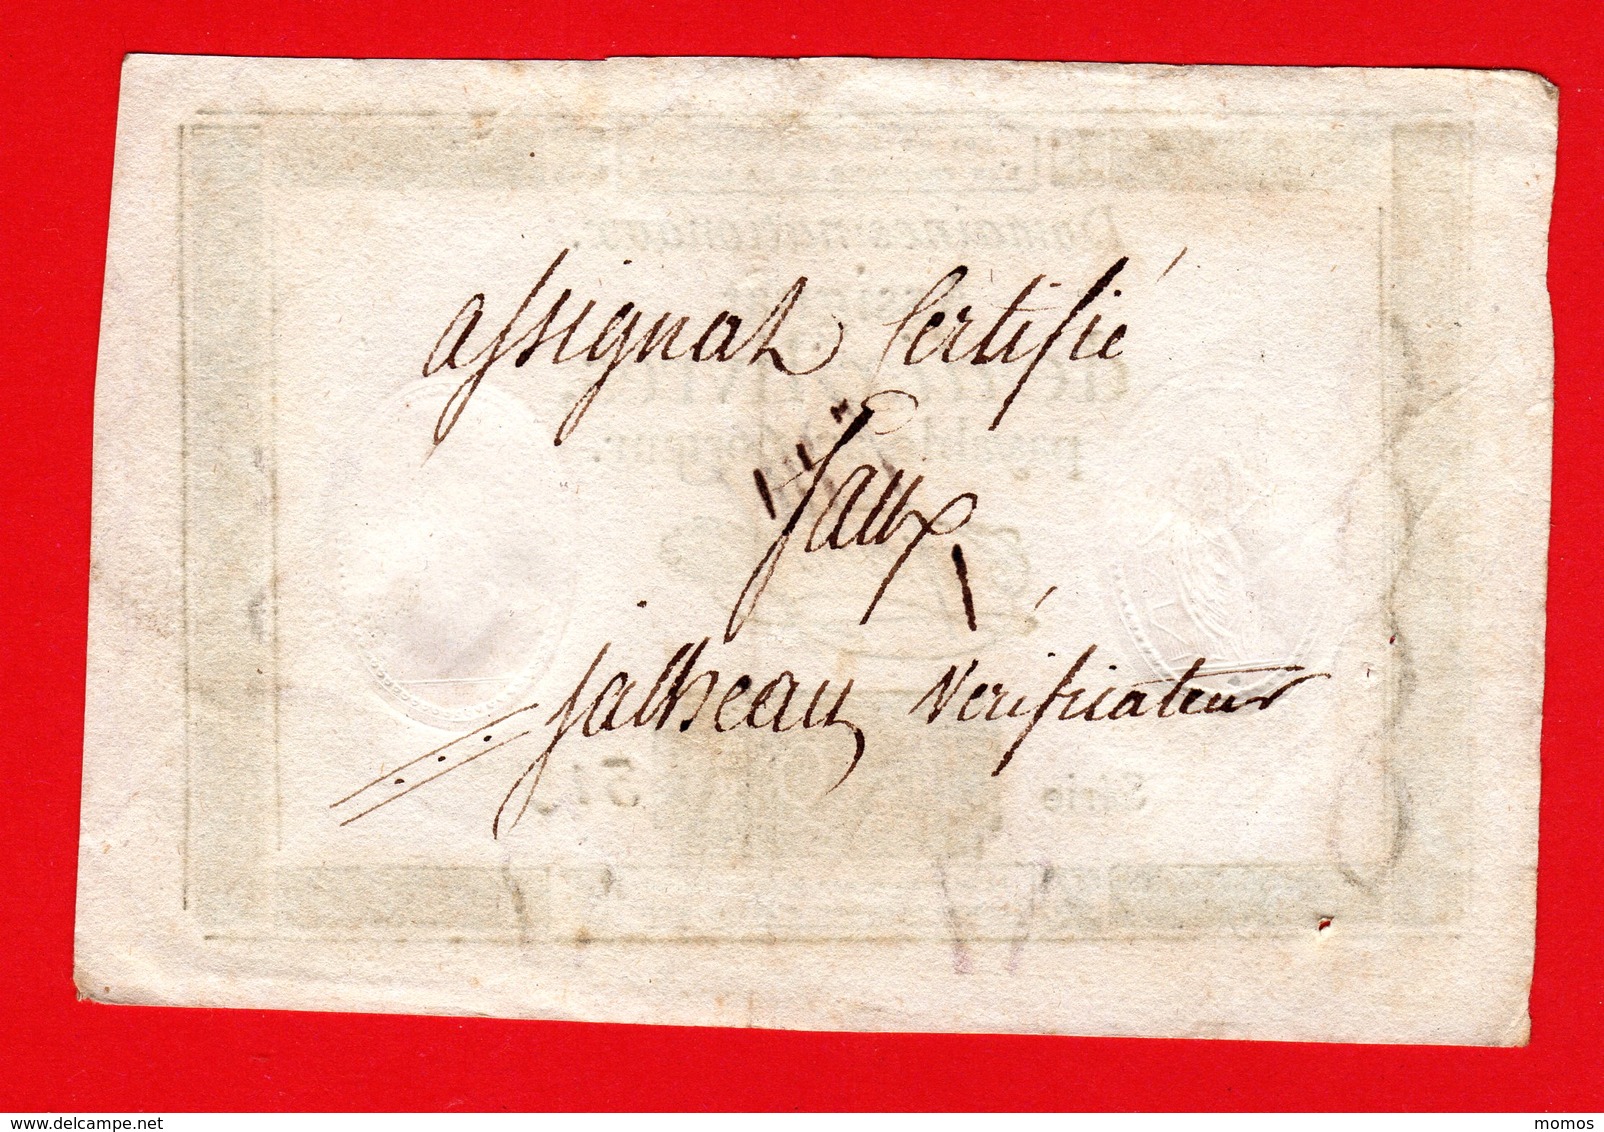 assignat Certifié
faux
jalheau Vérificateur
www.delcampe.net
momos